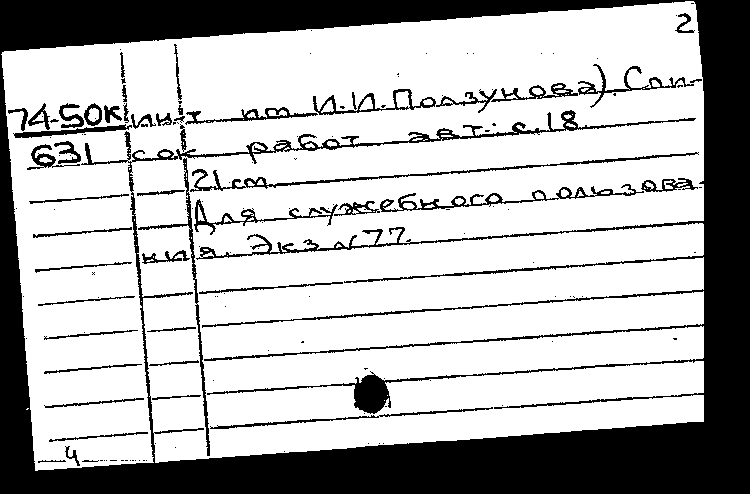 2
74-50К ин-т им И.И.Ползунова). Спи-
631 сок работ авт.: с.18
21 cm
Для служебного пользова-
ния. Экз № 77.
4